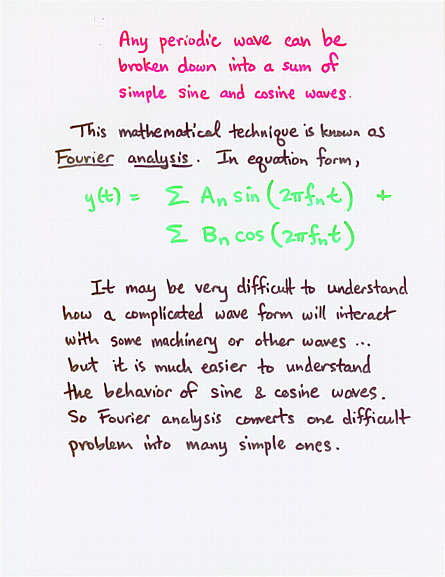 Any periodic wave can be
broken down into a sum of
simple sine and cosine waves.
This mathematical technique is known as
Fourier analysis. In equation form,
y(t) = Σ An sin (2πfnt) +
Σ Bn cos (2πfnt)
It may be very difficult to understand
how a complicated wave form will interact
with some machinery or other waves ...
but it is much easier to understand
the behavior of sine & cosine waves.
So Fourier analysis converts one difficult
problem into many simple ones.